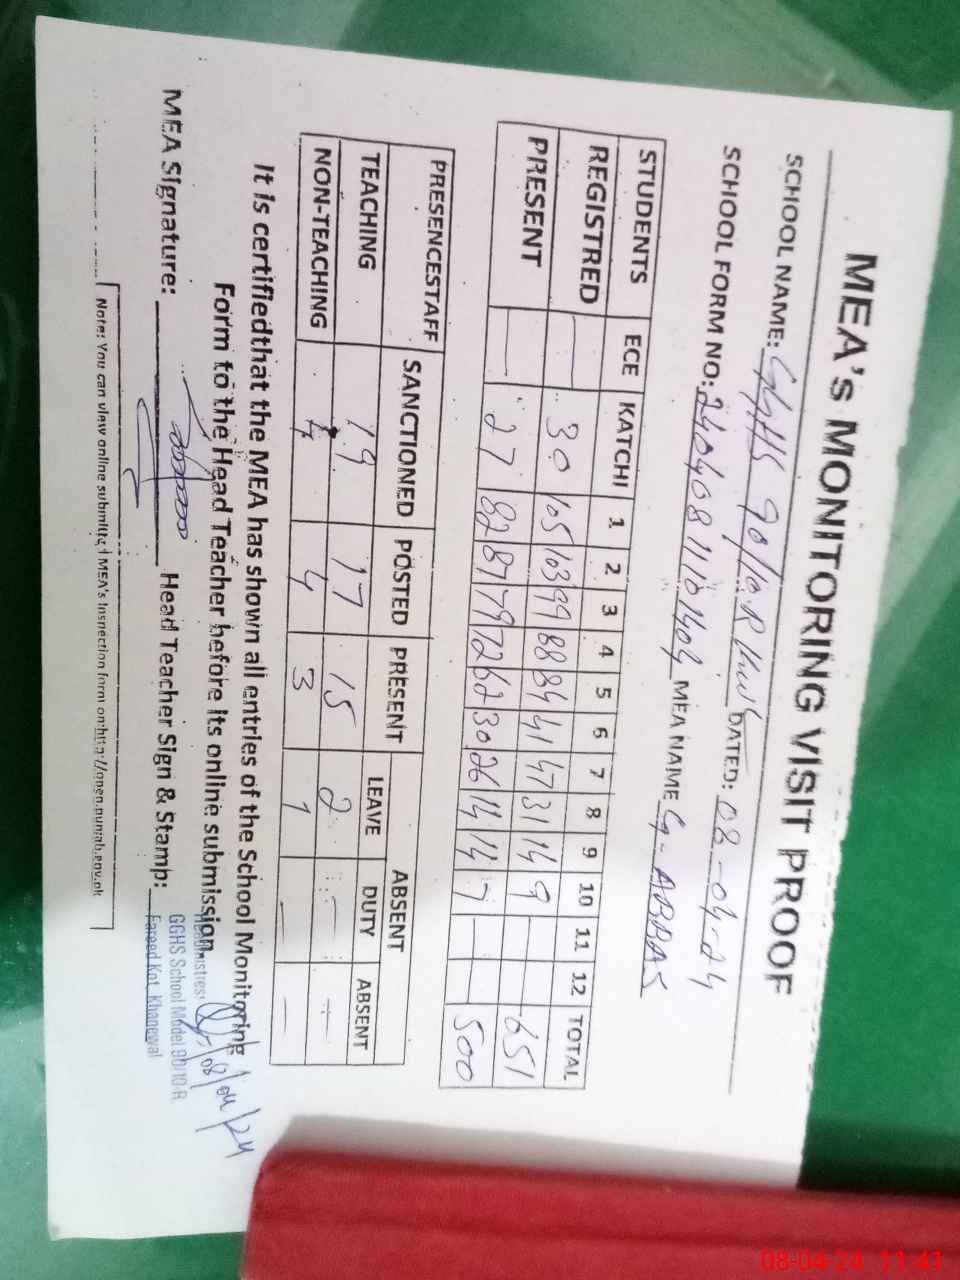 MEA's MONITORING VISIT PROOF
SCHOOL NAME: GGHS 90/10R KWL DATED: 08-04-24
SCHOOL FORM NO: MEA NAME ABBAS
STUDENTS ECE KATCHI 1 2 3 4 5 6 7 8 9 10 11 12 TOTAL
REGISTRED — 30 105 103 99 88 84 41 47 31 14 9 651
PRESENT — 27 82 87 79 72 62 30 26 14 14 7 500
PRESENCESTAFF SANCTIONED POSTED PRESENT ABSENT
LEAVE DUTY ABSENT
TEACHING 19 17 15 2 — —
NON-TEACHING 4 4 3 1 — —
It is certifiedthat the MEA has shown all entries of the School Monitoring
Form to the Head Teacher before its online submission.
MEA Signature: Head Teacher Sign & Stamp:
Headmistress
GGHS School Model 90/10-R
Fareed Kot, Khanewal
08/04/24
Note: You can view online submitted MEA's Inspection form on:http://open.punjab.gov.pk
08-04-24 11:41